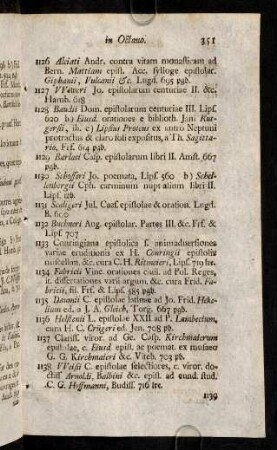 in Octavo. 351
1126 Alciati Andr. contra vitam monasticam ad
Bern. Mattium epist. Acc. sylloge epistolar.
Giphanii, Vulcanii &c. Lugd. 695 pgb.
1127 Weitzeri Jo. epistolarum centuriae II. &c.
Hamb. 618
1128 Baudii Dom. epistolarum centuriae III. Lips.
620 b) Ejusd. orationes e biblioth. Jani Rut-
gersii, ib. c) Lipsius Proteus ex antro Neptuni
protractus & claro soli expositus, a Th. Sagitta-
rio, Frf. 614 pgb.
1129 Barlaei Casp. epistolarum libri II. Amst. 667
pgb.
1130 Schosseri Jo. poemata, Lips. 560 b) Schel-
lenbergii Cph. carminum nuptialium libri II.
Lips. ib.
1131 Scaligeri Jul. Caes. epistolae & oration. Lugd.
B. 600
1132 Buchneri Aug. epistolar. Partes III. &c. Frf. &
Lips. 707
1133 Conringiana epistolica s. animadversiones
variae eruditionis ex H. Conringii epistolis
miscellan. &c. cura C. H. Ritmeieri, Lips. 719 ht.
1134 Fabricii Vinc. orationes caes. ad Pol. Reges,
it. dissertationes varii argum. &c. cura Frid. Fa-
bricii, fil. Frf. & Lips. 585 pgb.
1135 Daumii C. epistolae latinae ad Jo. Frid. Heke-
lium ed. a J. A. Gleich, Torg. 667 pgb.
1136 Holstenii L. epistolae XXII ad P. Lambecium,
cura H. C. Crügeri ed. Jen. 708 pb.
1137 Clariss. viror. ad Ge. Casp. Kirchmaierum
epistolae, e. Ejusd. epist. ac poemat. ex musaeo
G. G. Kirchmaieri &c. Viteb. 703 pb.
1138 Weisii C. epistolae selectiores, c. viror. do-
ctiss. Arnoldi, Balbini &c. epist. ad eund. stud.
C. G. Hoffmanni, Budiss. 716 ht.
1139